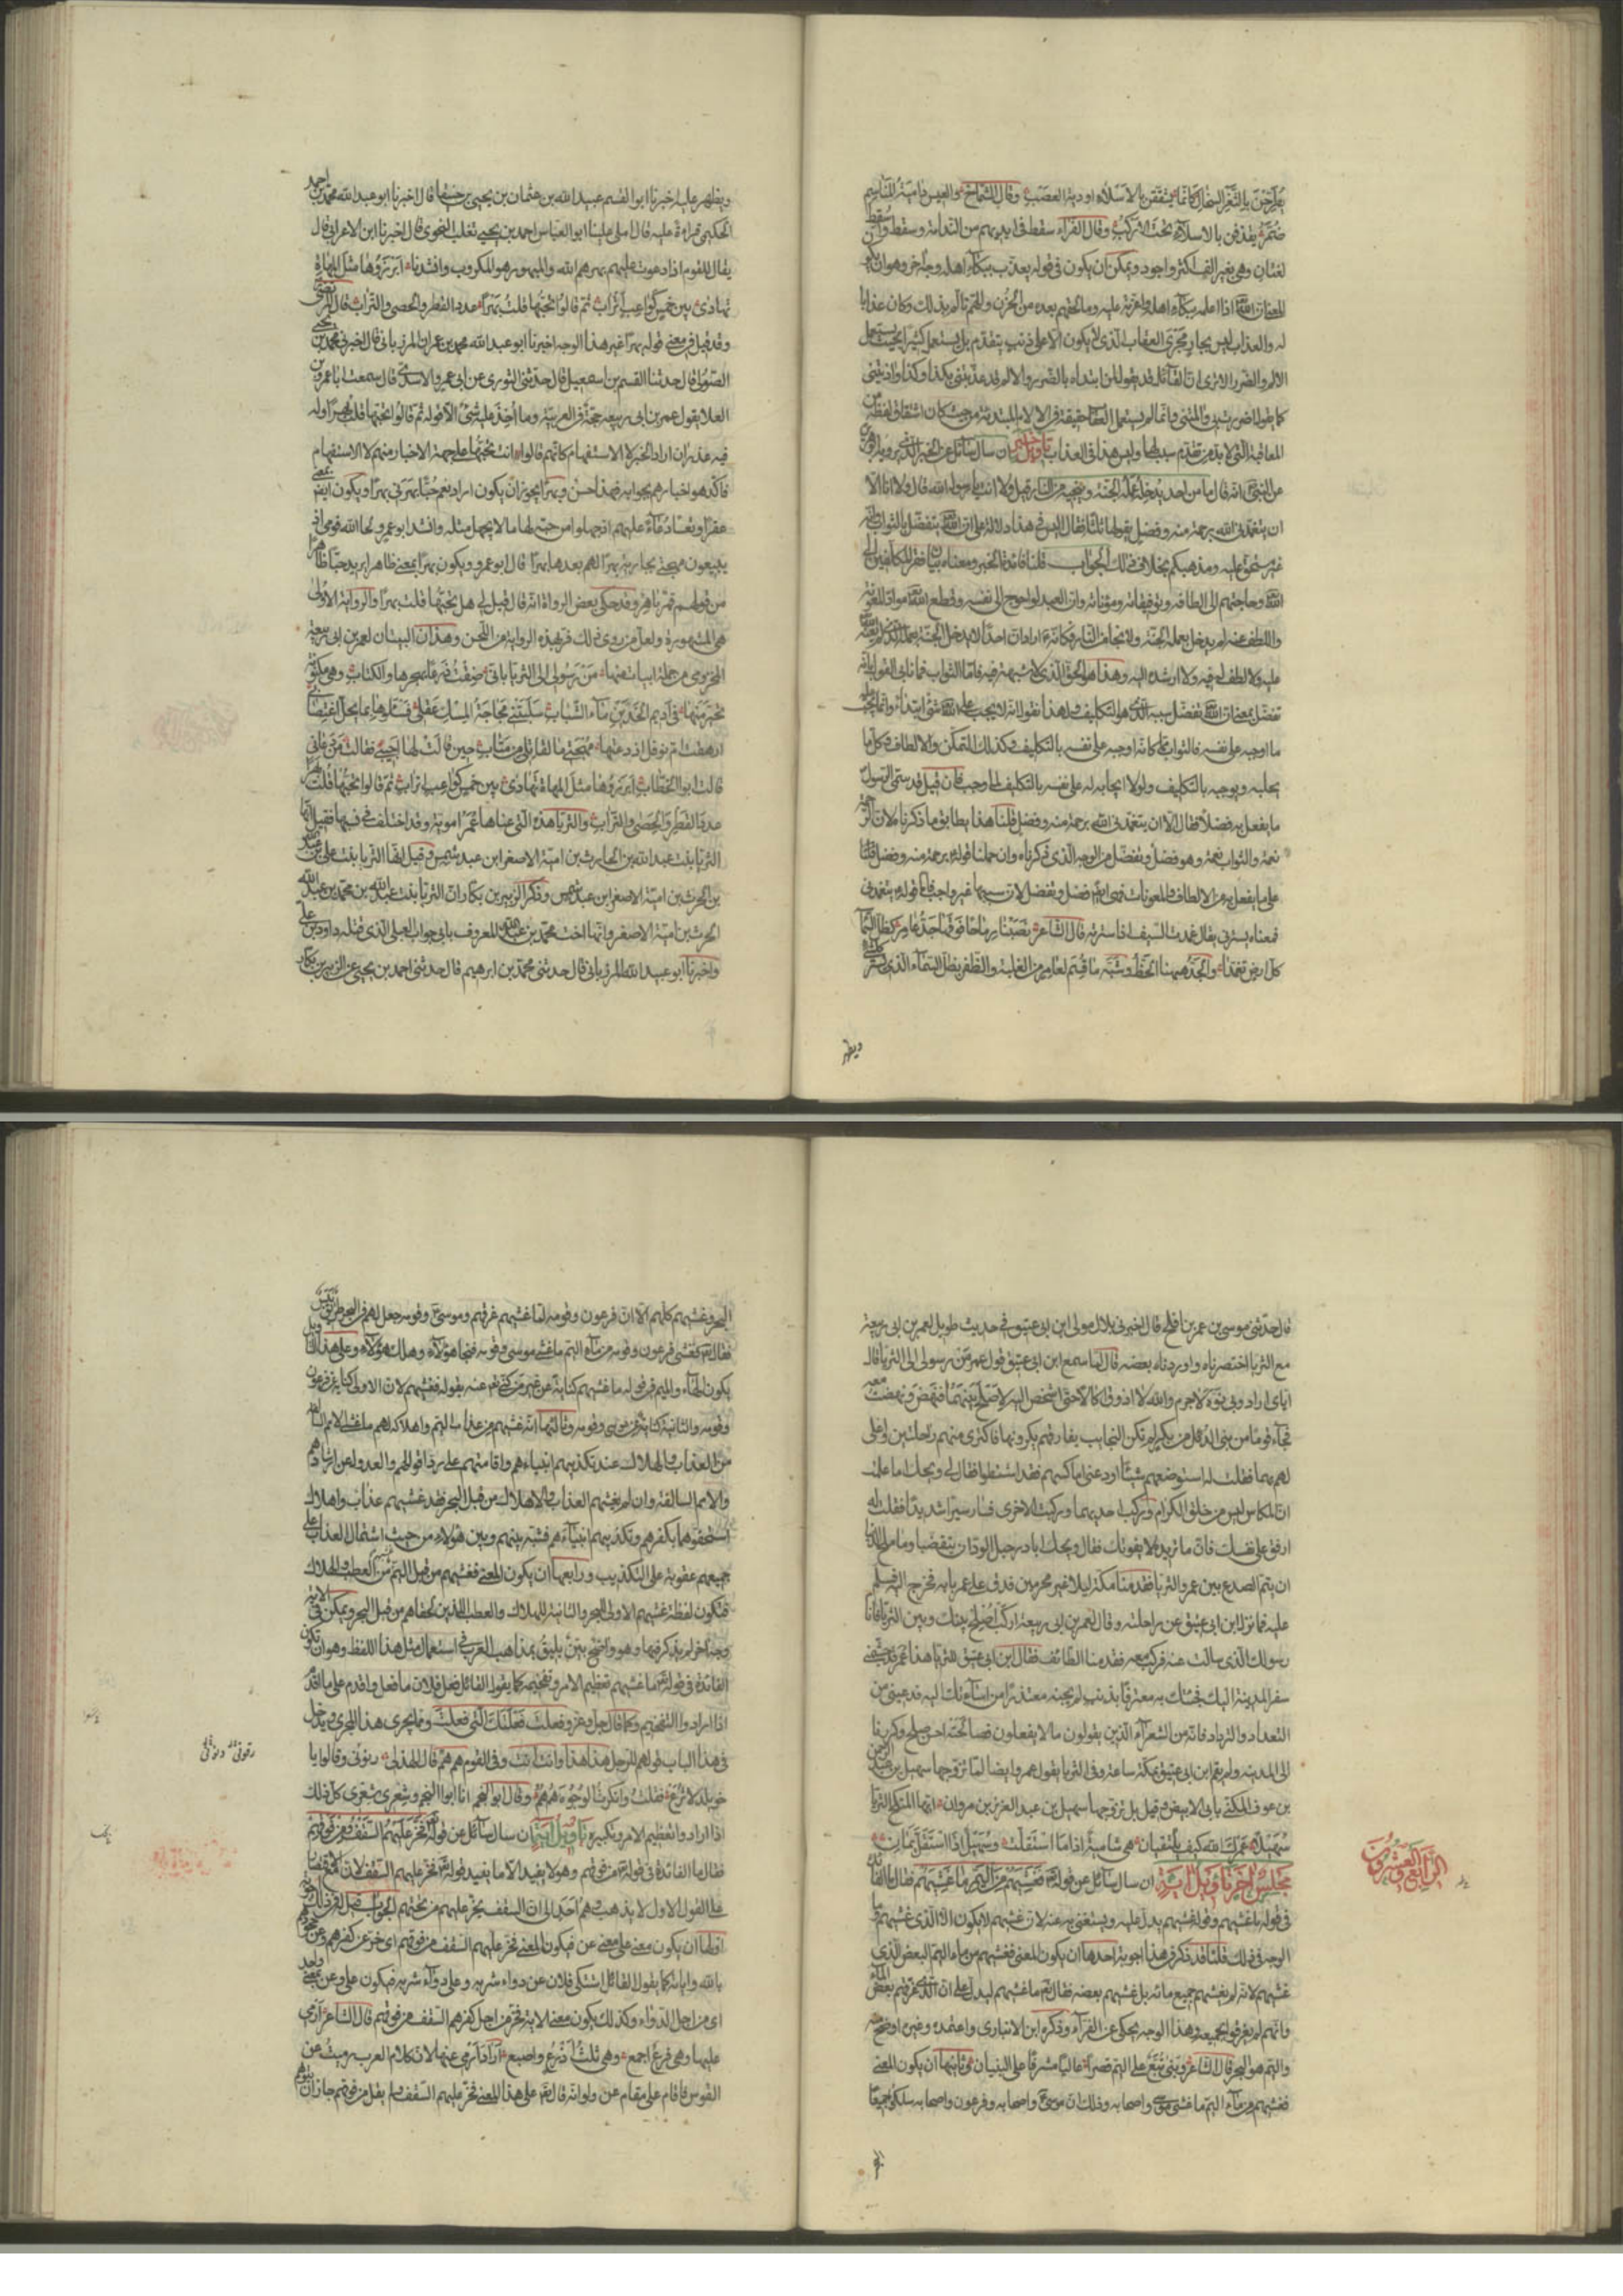 وقال الشماخ والعيس دامية المناسم
ضمر يقذفن بالاسلاء تحت الاركب وقال الفراء سقط في ايديهم من الندامة وسقط
لغتان وهي بغير الف اكثر واجود ويمكن ان يكون في قوله يعذب ببكاء اهله وجه اخر وهو ان يكون
اذا اعلمه ببكاء اهله واعزته عليه وما لحقهم بعده من الحزن والهم تالم بذلك وكان عذابا
له والعذاب ليس بجار مجرى العقاب الذي لا يكون الا على ذنب متقدم بل يستعمل كثيرا بحيث يستعمل
الالم والضرر الا ترى ان القائل قد يقول لمن ابتداه بالضرر والالم قد عذبتني بكذا وكذا واذيتني
كما يقول اضررت بي والمتني وانما لم يستعمل العقاب حقيقة في الالام المبتدئة من حيث كان اشتقاق لفظه من
المعاقبة التي لا بد من تقدم سبب لها وليس هذا في العذاب تاويل خبر ان سال سائل عن الخبر الذي يرويه
عن النبي انه قال ما من احد يدخله عمله الجنة وينجيه من النار قيل ولا انت يا رسول الله قال ولا انا الا
ان يتغمدني الله برحمة منه وفضل يقولها ثلثا فقال اليس في هذا دلالة على ان الله يتفضل بالثواب وانه
غير مستحق عليه ومذهبكم بخلاف ذلك الجواب قلنا فائدة الخبر ومعناه بيان فقر المكلفين الى
الله وحاجتهم الى الطافه وتوفيقاته ومعوناته وان العبد لو احوج الى نفسه وقطع الله مواد المعونة
واللطف عنه لم يدخل بعمله الجنة ولا نجا من النار فكانه اراد ان احدا لا يدخل الجنة بعمله الذي لم يعنه
عليه ولا لطف له فيه ولا ارشده اليه وهذا هو الحق الذي لا شبهة فيه فاما الثواب فما نابى القول بانه
تفضل بمعنى ان الله تفضل بسببه الذي هو التكليف ولهذا نقول انه لا يجب على الله شئ ابتداء وانما يجب عليه
ما اوجبه على نفسه فالثواب مما كان اوجبه على نفسه بالتكليف وكذلك التمكين والالطاف وكل ما
يجلبه ويوجبه بالتكليف ولولا ايجابه له على نفسه بالتكليف لما وجب فان قيل فقد سمى الرسول
ما يفعل به فضلا فقال الا ان يتغمدني الله برحمة منه وفضل قلنا هذا يطابق ما ذكرناه لان الرحمة
نعمة والثواب نعمة وهو فضل وتفضل من الوجه الذي ذكرناه وان حملنا قوله برحمة منه وفضل
على ما يفعل به من الالطاف والمعونات فهي ايضا فضل وتفضل لان سببها غير واجب فاما قوله يتغمدني
فمعناه يسترني يقال غمدت السيف اذا سترته قال الشاعر نصبنا رماحا فوقها جد عامر كظل السما
كل ارض تغمدا والجد ههنا الحظ وشبه ما قسم لعامر من الغلبة والظفر بظل السماء الذي يستر كل شئ
ويظهر
ويظهر عليه اخبرنا ابو القسم عبيد الله بن عثمان بن يحيى بن قال اخبرنا ابو عبد الله محمد بن احمد
الحكيمي قراءة عليه قال املى علينا ابو العباس احمد بن يحيى ثعلب النحوي قال اخبرنا ابن الاعرابي قال
يقال للقوم اذا دعوت عليهم بهرهم الله والمبهور هو المكروب وانشدنا ابرزوها مثل المهاة
تهادى بين خمس كواعب اتراب ثم قالوا تحبها قلت بهرا عدد القطر والحصى والتراب قال
وقد قيل في معنى قوله بهرا غير هذا الوجه اخبرنا ابو عبد الله محمد بن عمران المرزباني قال اخبرني محمد بن يحيى
الصولي قال حدثنا القسم بن اسمعيل قال حدثني التوزي عن ابي عمرو الاسدي قال سمعت ابا عمرو بن
العلا يقول عمر بن ابي ربيعة حجة في العربية وما اخذ عليه شئ الا قوله ثم قالوا تحبها قلت بهرا وله
فيه عذر ان اراد الخبر لا الاستفهام كانهم قالوا انت تحبها على جهة الاخبار منهم لا الاستفهام
فاكد هو اخبارهم بجوابه فهذا حسن وبهرا يجوز ان يكون اراد نعم حبا بهرني بهرا ويكون ايضا بمعنى
عقرا وتعسا دعاء عليهم اذ جهلوا من حبه لها ما لا يجهل مثله وانشد ابو عمرو لحا الله قومي اذ
يبيعون مهجتي بجارية بهرا لهم بعدها بهرا قال ابو عمرو ويكون بهرا بمعنى ظاهرا يريد حبا ظاهرا
من قولهم قمر باهر وقد حكى بعض الرواة انه قال قيل لي هل تحبها قلت بهرا والرواية الاولى
هي المشهورة ولعل من روى ذلك فر بهذه الرواية من اللحن وهذان البيتان لعمر بن ابي ربيعة
المخزومي من جملة ابيات منها من رسولي الى الثريا باني ضقت ذرعا بهجرها والكتاب وهي مكنونة
تحير منها في اديم الخدين ماء الشباب سلبتني مجاجة المسك عقلي فسلوها بما يحل اغتصابي
ازهقت ام نوفل اذ دعتها مهجتي ما لقاتلي من متاب حين قالت لها اجيبي فقالت من دعاني
قالت ابو الخطاب ابرزوها مثل المهاة تهادى بين خمس كواعب اتراب ثم قالوا تحبها قلت بهرا
عدد القطر والحصى والتراب والثريا هذه التي عناها عمر اموية وقد اختلف في نسبها فقيل انها
الثريا بنت عبد الله بن الحارث بن امية الاصغر ابن عبد شمس وقيل انها الثريا بنت علي بن عبد الله
بن الحرث بن امية الاصغر ابن عبد شمس وذكر الزبير بن بكار ان الثريا بنت عبد الله بن محمد بن عبد الله
الحرث بن امية الاصغر وانها اخت محمد بن عبد الله المعروف بابي جراب العبلي الذي قتله داود بن علي
واخبرنا ابو عبيد الله المرزباني قال حدثني محمد بن ابرهيم قال حدثني احمد بن يحيى عن الزبير بن بكار
قال حدثني موسى بن عمر بن افلح قال اخبرني بلال مولى ابن ابي عتيق في حديث طويل لعمر بن ابي ربيعة
مع الثريا اختصرناه واوردناه بعضه قال لما سمع ابن ابي عتيق قول عمر من رسولي الى الثريا قال
اياي اراد وبي نوه لا جرم والله لا اذوق اكالا حتى اشخص اليه لاصلح بينهما فنهض ونهضت معه
فجاء قوما من بني الديل بن بكر لم تكن النجايب يفارقهم يكرونها فاكترى منهم راحلتين واغلى
لهم بهما فقلت له استوضعهم شيئا او دعني اماكسهم فقد اشتطوا فقال لي ويحك اما علمت
ان المكاس ليس من خلق الكرام وركب احديهما وركبت الاخرى فسار سيرا شديدا فقلت له
ارفق على نفسك فان ما تريد لا يفوتك فقال ويحك ابادر حبل الود ان يتقضبا وما ملح الدنيا
ان يتم الصدع بين عمر والثريا فقدمنا مكة ليلا غير محرمين فدق على عمر بابه فخرج اليه فسلم
عليه فما نزل ابن ابي عتيق عن راحلته وقال لعمر بن ابي ربيعة اركب اصلح بينك وبين الثريا فانا
رسولك الذي سالت عنه فركب معه فقدمنا الطائف فقال ابن ابي عتيق للثريا هذا عمر قد جشمني
سفر المدينة اليك فجئتك به معترفا بذنب لم يجنه معتذرا من اساءته اليك فدعيني من
التعداد والترداد فانه من الشعراء الذين يقولون ما لا يفعلون فصالحته احسن صلح وكررنا
الى المدينة ولم يقم ابن ابي عتيق بمكة ساعة وفي الثريا يقول عمر ايضا لما تزوجها سهيل بن عبد الرحمن
بن عوف المكنى بابي الابيض وقيل بل تزوجها سهيل بن عبد العزيز بن مروان ايها المنكح الثريا
سهيلا عمرك الله كيف يلتقيان هي شامية اذا ما استقلت وسهيل اذا استقل يمان
مجلس اخر تاويل اية ان سال سائل عن قوله فغشيهم من اليم ما غشيهم فقال ما الفائدة
في قوله ما غشيهم وقوله فغشيهم يدل عليه ويستغنى به عنه لان غشيهم لا يكون الا الذي غشيهم وما
الوجه في ذلك قلنا قد ذكر في هذا اجوبة احدها ان يكون المعنى فغشيهم من ماء اليم البعض الذي
غشيهم لانه لم يغشهم جميع مائه بل غشيهم بعضه فقال تع ما غشيهم ليدل على ان الذي غرقهم بعض الماء
وانهم لم يغرقوا بجميعه وهذا الوجه يحكى عن الفراء وذكره ابن الانباري واعتمده وغيره اوضح منه
واليم هو البحر قال الشاعر وبنى تبع على اليم قصرا عاليا مشرفا على البنيان وثانيها ان يكون المعنى
فغشيهم من ماء اليم ما غشي موسى واصحابه وذلك ان موسى واصحابه وفرعون واصحابه سلكوا جميعا
الرابع والعشرون
البحر وغشيهم كلهم الا ان فرعون وقومه لما غشيهم غرقهم وموسى وقومه جعل لهم في البحر طريق يبس
فقال تع فغشي فرعون وقومه من ماء اليم ما غشي موسى وقومه فنجا هؤلاء وهلك هؤلاء وعلى هذا التاويل
يكون الهاء والميم في قوله ما غشيهم كناية عن غير من كنى عنه بقوله فغشيهم لان الاولى كناية عن فرعون
وقومه والثانية كناية عن موسى وقومه وثالثها انه غشيهم من عذاب اليم واهلاكه لهم ما غشي الامم السالفة
من العذاب والهلاك عند تكذيبهم انبياءهم واقامتهم على رد اقوالهم والعدول عن ارشادهم
والامم السالفة وان لم يغشهم العذاب والاهلاك من قبل البحر فقد غشيهم عذاب واهلاك
استحقوهما بكفرهم وتكذيبهم انبياءهم فشبه بينهم وبين هؤلاء من حيث اشتمال العذاب على
جميعهم عقوبة على التكذيب ورابعها ان يكون المعنى فغشيهم من قبل اليم ما غشيهم من العطب والهلاك
فتكون لفظة غشيهم الاولى للبحر والثانية للهلاك والعطب اللذين لحقاهم من قبل البحر ويمكن في الاية
وجه اخر لم يذكر فيها وهو واضح بين يليق بمذاهب العرب في استعمال مثل هذا اللفظ وهو ان تكون
الفائدة في قوله ما غشيهم تعظيم الامر وتفخيمه كما يقول القائل فعل فلان ما فعل واقدم على ما اقدم
اذا ارادوا التفخيم وكما قال جل وعز وفعلت فعلتك التي فعلت وما يجرى هذا المجرى ويدخل
في هذا الباب قولهم للرجل هذا هذا وانت انت وفي القوم هم هم قال الهذلي رفوني وقالوا يا
خويلد لا ترع فقلت وانكرت الوجوه هم هم وقال ابو النجم انا ابو النجم وشعري شعري كل ذلك
اذا ارادوا تعظيم الامر وتكبيره تاويل اية ان سال سائل عن قوله فخر عليهم السقف من فوقهم
فقال ما الفائدة في قوله من فوقهم وهو لا يفيد الا ما يفيد قوله فخر عليهم السقف لان مع الاقتصار
على القول الاول لا يذهب وهم احد الى ان السقف يخر عليهم من تحتهم الجواب قيل له في ذلك
اولها ان يكون معنى على معنى عن فيكون المعنى فخر عليهم السقف من فوقهم اي خر عن كفرهم وجحودهم
بالله واياته كما يقول القائل اشتكى فلان عن دواء شربه وعلى دواء شربه فيكون على وعن بمعنى واحد
اي من اجل الدواء وكذلك يكون معنى الاية فخر من اجل كفرهم السقف من فوقهم قال الشاعر ارمي
عليها وهي فرع اجمع وهي ثلث اذرع واصبع اراد ارمي عنها لان كلام العرب رميت عن
القوس فاقام على مقام عن ولو انه قال تع على هذا المعنى فخر عليهم السقف ولم يقل من فوقهم جاز ان يتوهم